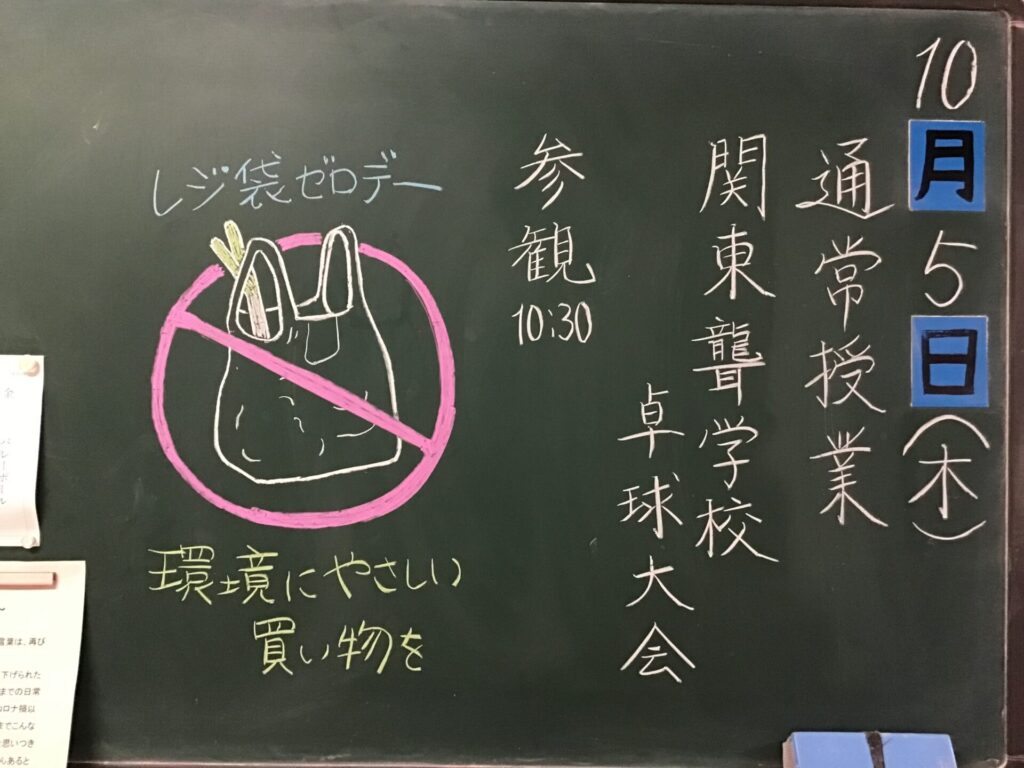 10月5日(木)
通常授業
関東聾学校
卓球大会
参観10:30
レジ袋ゼロデー
環境にやさしい
買い物を
全
バレーボール
~
言葉は、再び
下げられた
までの日常
コロナ禍以
までこんな
と思いつき
んあると